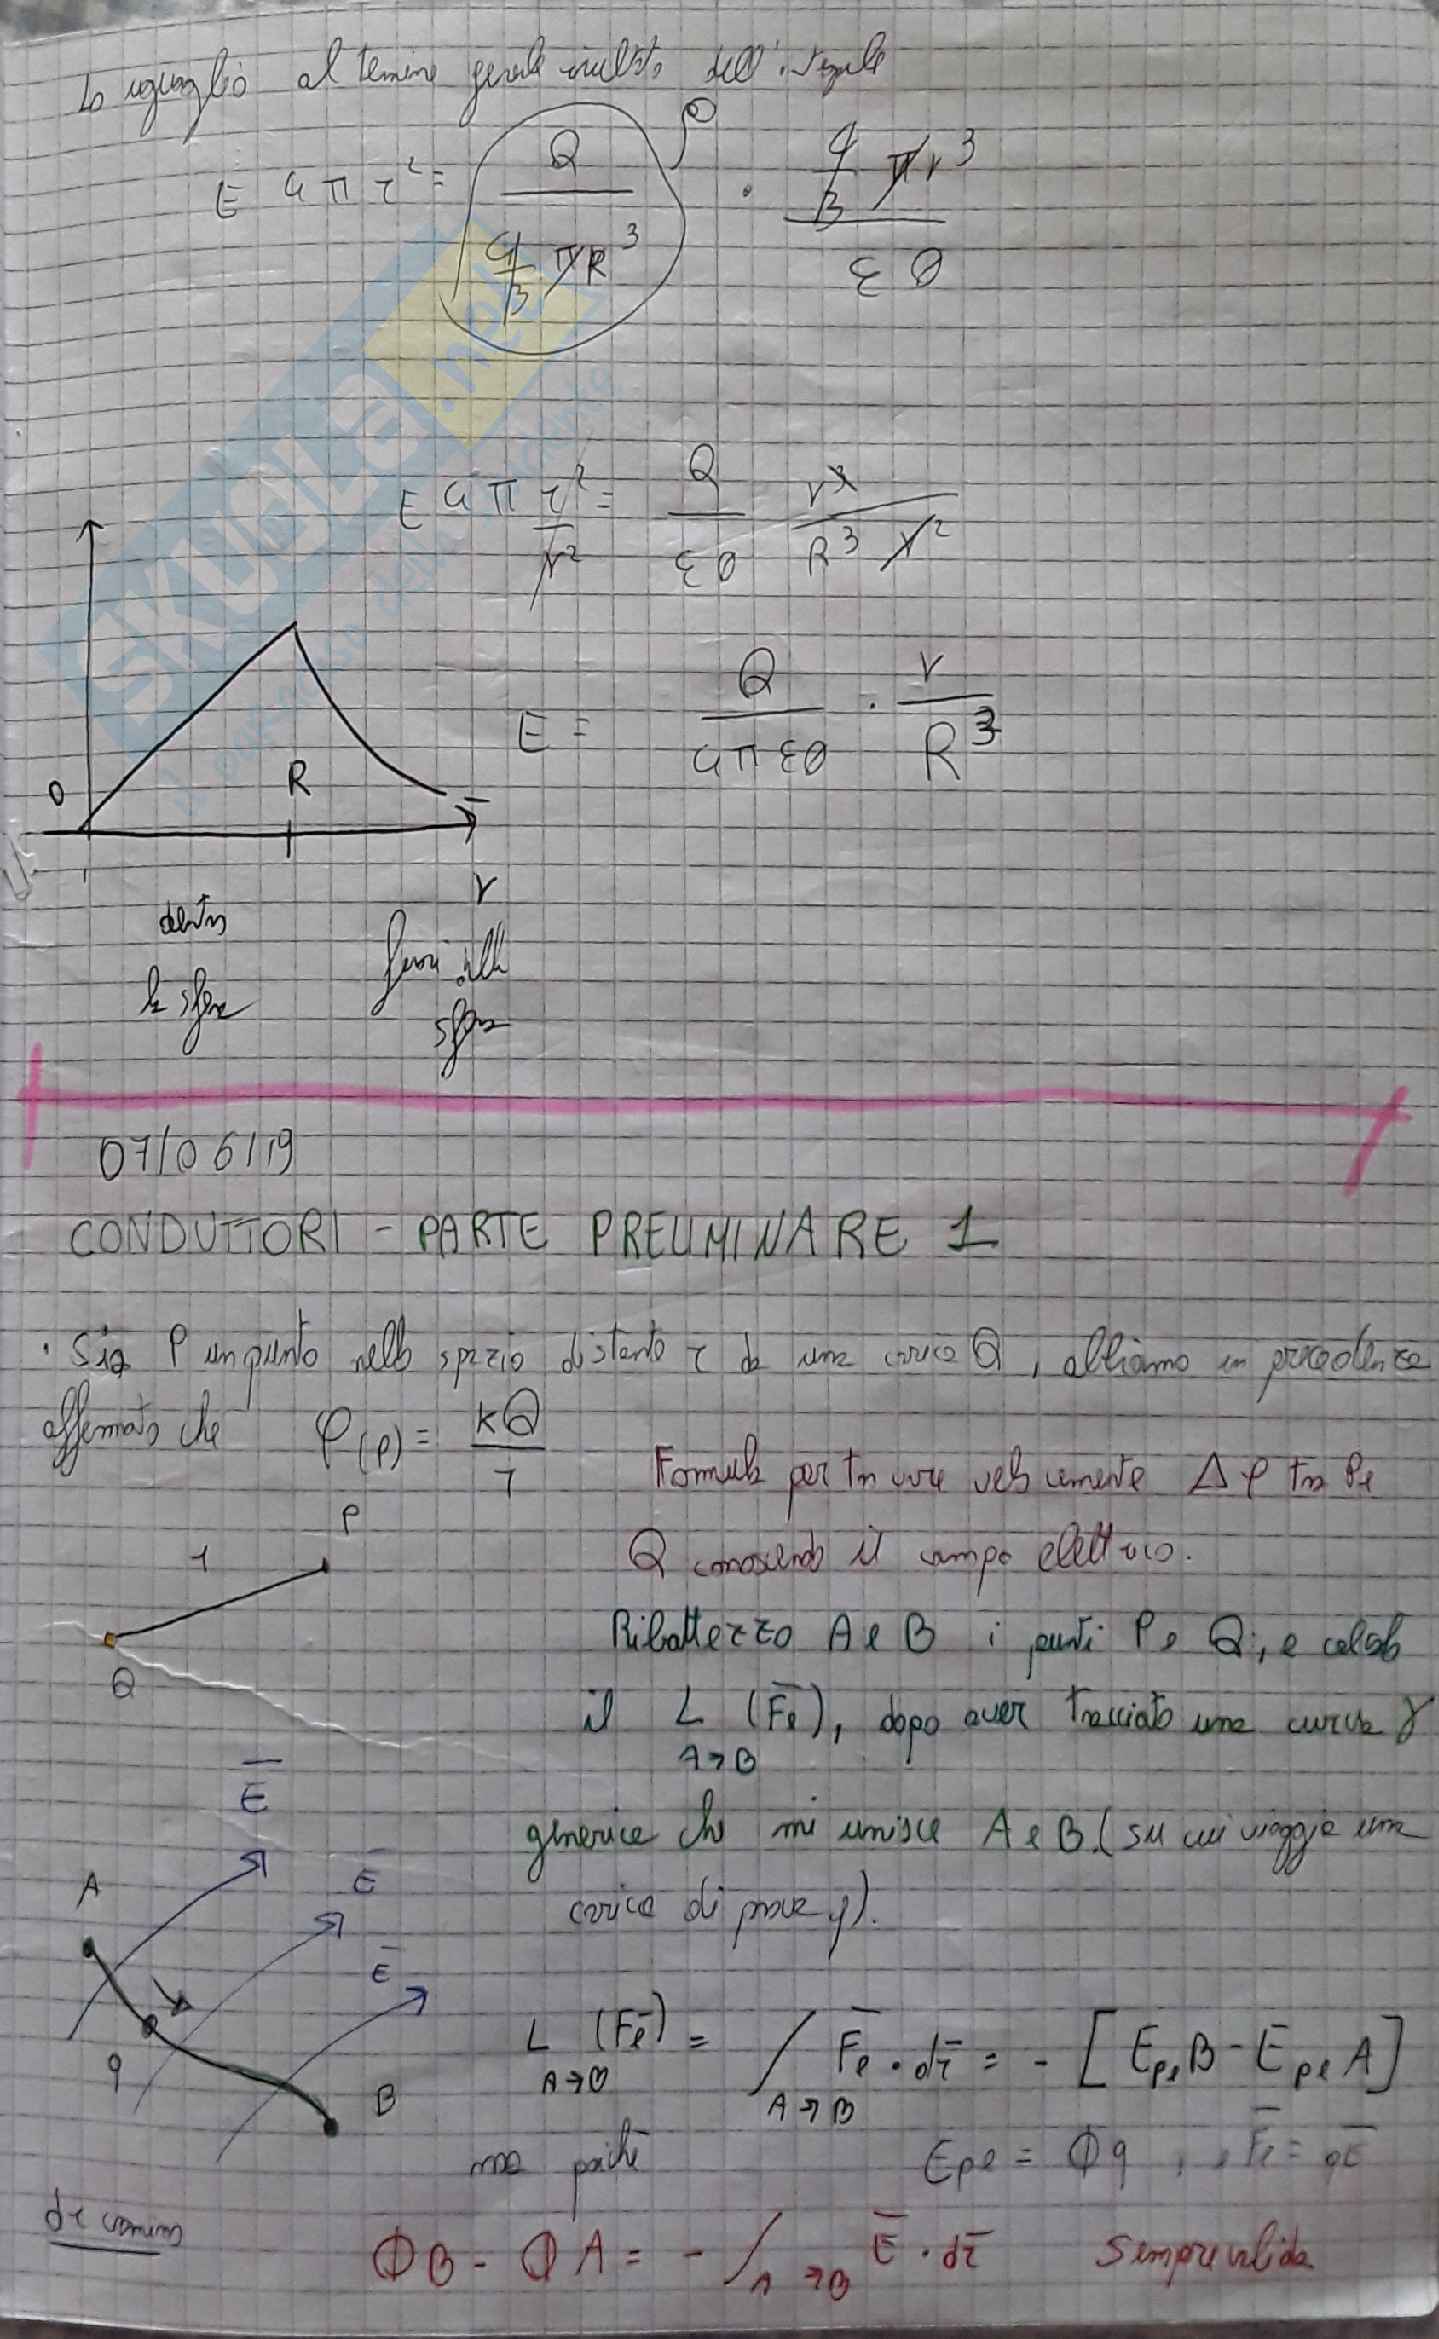 Lo uguaglio al termine generale risultato dell'integrale
E 4 π r² = Q / (4/3 π R³) · (4/3 π r³) / ε0
ρ
E 4 π r² / r² = Q / ε0 r³ / (R³ r²)
E = Q / (4 π ε0) · r / R³
0
R
r
dentro la sfera
fuori alla sfera
07/06/19
CONDUTTORI - PARTE PRELIMINARE 1
· Sia P un punto nello spazio distante r da una carica Q, abbiamo in precedenza
affermato che φ(P) = kQ / r
Formula per trovare velocemente Δφ tra P e
Q conoscendo il campo elettrico.
P
r
Q
Ribattezzo A e B i punti P e Q, e calcolo
il L A→B (Fe), dopo aver tracciato una curva γ
generica che mi unisce A e B (su cui viaggia una
carica di prova q).
E
E
E
A
q
B
L A→B (Fe) = ∫ A→B Fe · dr = - [EpeB - EpeA]
ma poiché Epe = Φq , Fe = qE
ΦB - ΦA = - ∫ A→B E · dr Sempre valida
SKUOLA.net